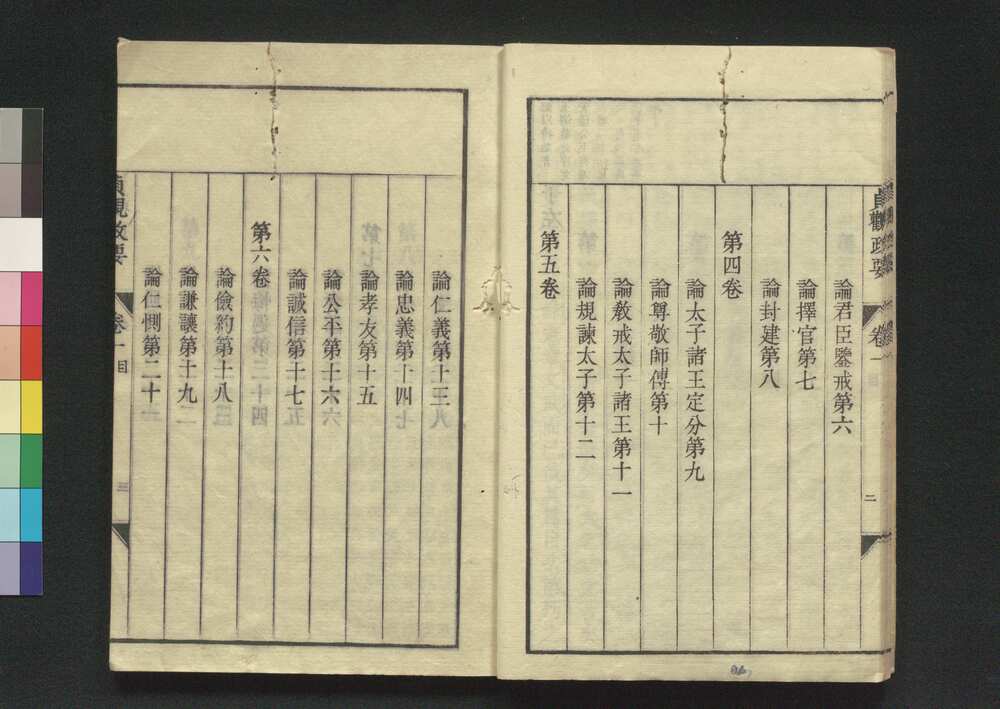 貞觀政要 卷一 目 二
論君臣鑒戒第六
論擇官第七
論封建第八
第四卷
論太子諸王定分第九
論尊敬師傅第十
論教戒太子諸王第十一
論規諫太子第十二
第五卷
論仁義第十三
論忠義第十四
論孝友第十五
論公平第十六
論誠信第十七
第六卷
論儉約第十八
論謙讓第十九
論仁惻第二十
貞觀政要 卷一 目 三